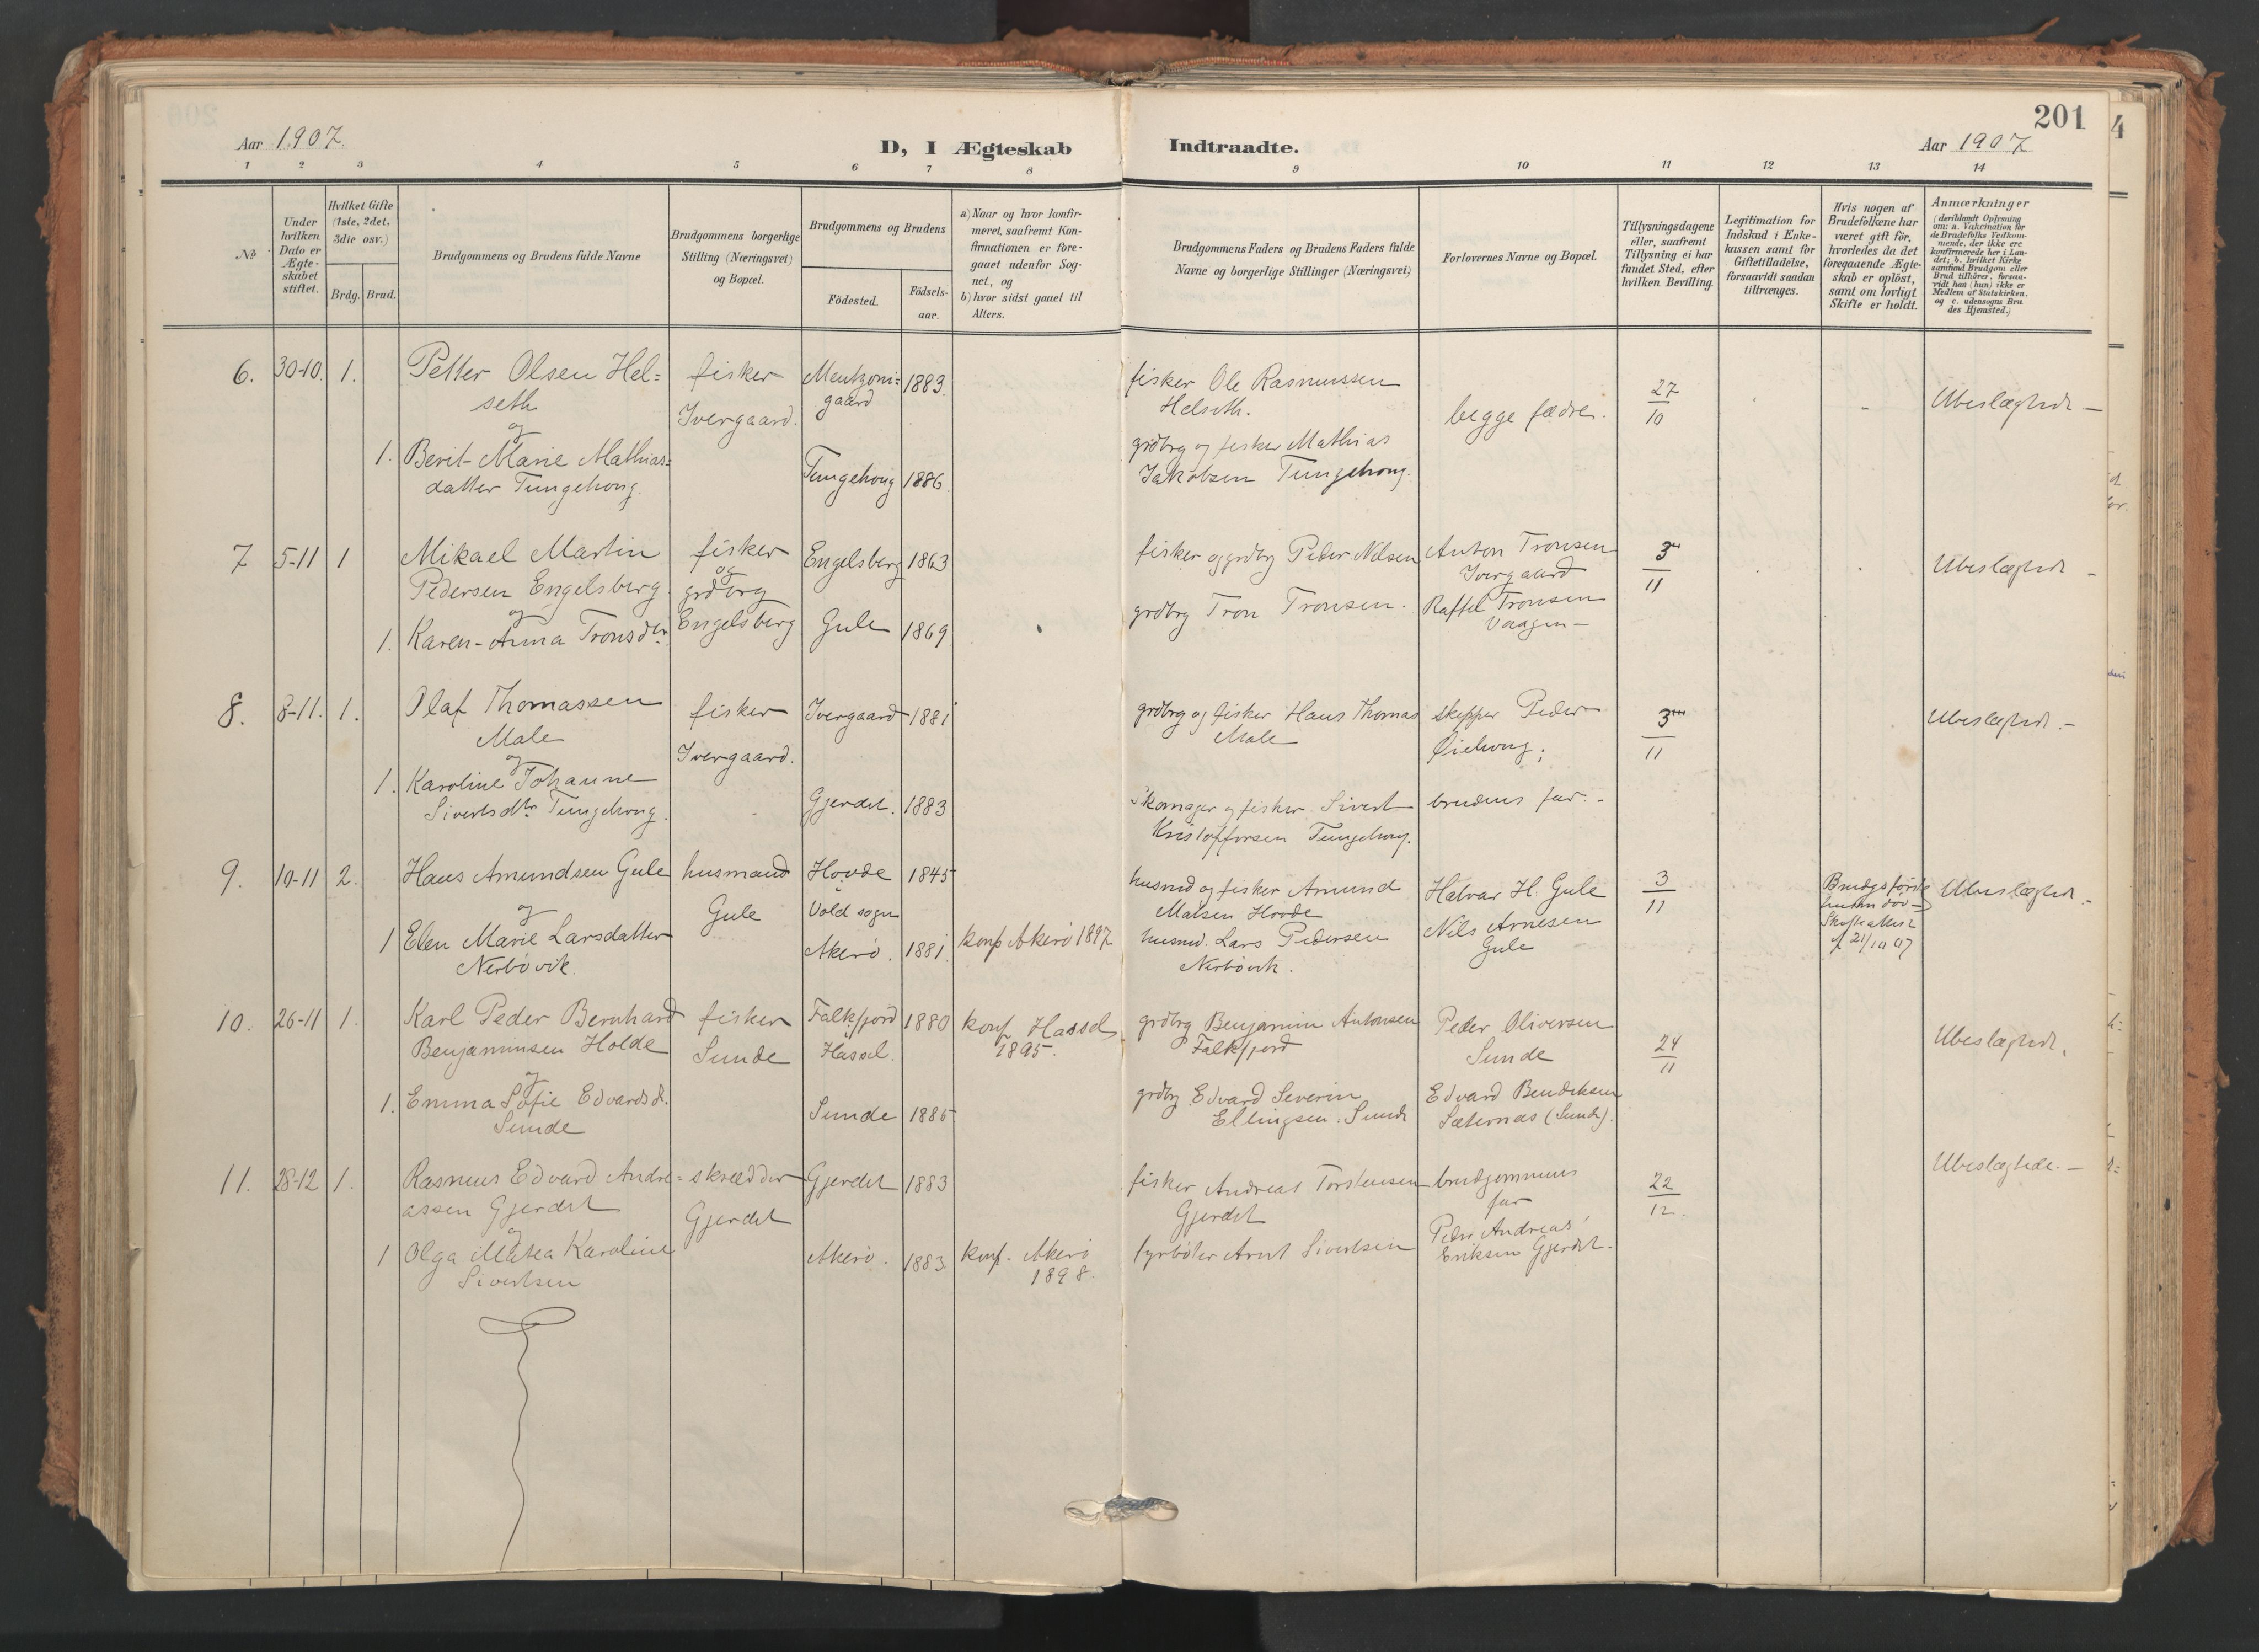 201
Aar 1907.
D, I Ægteskab Indtraadte.
Aar 1907
1 2 3 4 5 6 7 8 9 10 11 12 13 14
No
Under hvilken Dato er Ægte-skabet stiftet.
Hvilket Gifte (1ste, 2det, 3die osv.)
Brdg. Brud.
Brudgommens og Brudens fulde Navne
Brudgommens borgerlige Stilling (Næringsvei) og Bopæl.
Brudgommens og Brudens
Födested.
Födsels-aar.
a) Naar og hvor konfir-meret, saafremt Kon-firmationen er fore-gaaet udenfor Sog-net, og
b) hvor sidst gaaet til Alters.
Brudgommens Faders og Brudens Faders fulde Navne og borgerlige Stillinger (Næringsvei)
Forlovernes Navne og Bopæl.
Tillysningsdagene eller, saafremt Tillysning ei har fundet Sted, efter hvilken Bevilling.
Legitimation for Indskud i Enke-kassen samt for Giftetilladelse, forsaavidt saadan tiltrænges.
Hvis nogen af Brudefolkene har været gift för, hvorledes da det foregaaende Ægte-skab er oplöst, samt om lovligt Skifte er holdt.
Anmærkninger
(deriblandt Oplysning om: a. Vakcination for de Brudefolks Vedkom-mende, der ikke ere konfirmerede her i Lan-det; b. hvilket Kirke-samfund Brudgom eller Brud tilhörer, forsaa-vidt han (hun) ikke er Medlem af Statskirken, og c. udensogns Bru-des Hjemsted.)
6. 30-10. 1. Petter Olsen Hel=
seth
og
1. Berit-Marie Mathias=
datter Tungehoug.
fisker
Ivergaard.
Mentzoni=
gaard 1883.
Tungehoug 1886.
fisker Ole Rasmussen
Helseth.
grdbrg og fisker Mathias
Jakobsen Tungehoug.
begge fædre.
27
10
Ubeslægtede —
7 5-11 1 Mikael Martin
Pedersen Engelsberg.
og
1. Karen-Anna Tronsdtr.
fisker
og
grdbrg
Engelsberg
Engelsberg 1863
Gule 1869.
fisker og grdbrg Peder Nilsen
grdbrg Tron Tronsen.
Anton Tronsen
Ivergaard
Raffel Tronsen
Vaagen —
3
11
Ubeslægtede —
8. 8-11. 1. Olaf Thomassen
Male
og
1. Karoline Johanne
Sivertsdtr. Tungehoug.
fisker
Ivergaard.
Ivergaard 1881
Gjerdet. 1883
grdbrg og fisker Hans Thomas
Male
Skomager og fisker Sivert
Kristoffersen Tungehoug.
skipper Peder
Øiehoug;
brudens far. -
3
11
Ubeslægtede. —
9. 10-11 2. Hans Amundsen Gule
og
1 Elen Marie Larsdatter
Nerbövik.
husmand
Gule
Hovde 1845
Vold sogn
Akerö. 1881.
konf Akerö 1897
husmd og fisker Amund
Matsen Hovde
husmd. Lars Pedersen
Nerbövik.
Halvar H. Gule
Nils Arnesen
Gule
3
11
Brudgs förste
hustru död —
Skifteattest
af 21/10 07
Ubeslægtede. -
10. 26-11 1. Karl Peder Bernhard
Benjaminsen Holde
og
1. Emma Sofie Edvardsd.
Sunde
fisker
Sunde
Falkfjord 1880
Hassel.
Sunde 1885
konf Hassel
1895.
grdbrg Benjamin Antonsen
Falkfjord
grdbrg Edvard Severin
Ellingsen. Sunde
Peder Oliversen
Sunde
Edvard Bendiksen
Sæternæs (Sunde).
24
11
Ubeslægtede.
11. 28-12 1. Rasmus Edvard Andre=
assen Gjerdet
og
1 Olga Matea Karoline
Sivertsen
skrædder
Gjerdet
Gjerdet 1883
Akerö. 1883.
konf. Akerö
1898.
fisker Andreas Torstensen
Gjerdet
fyrböter Arnt Sivertsen
brudgommens
far
Peder Andreas
Eriksen Gjerdet.
22
12.
Ubeslægtede. —